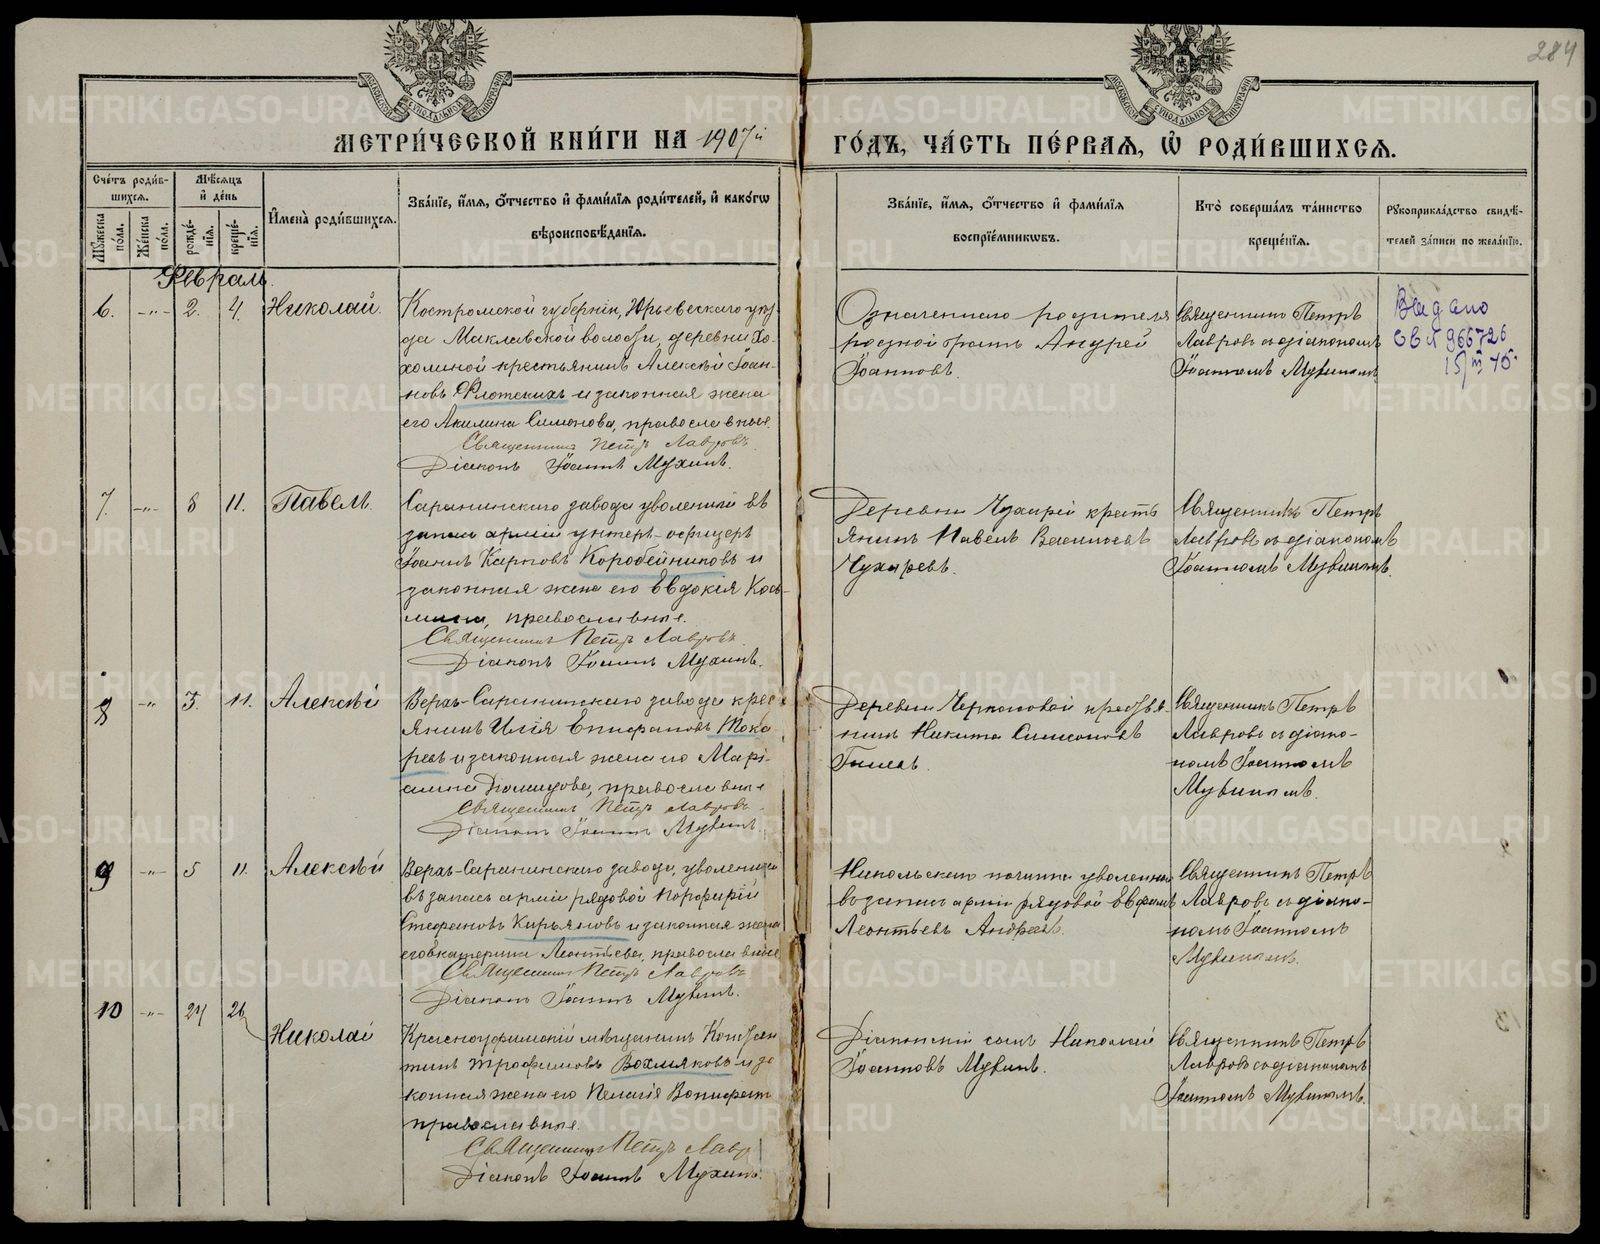 284
МЕТРИ́ЧЕСКОЙ КНИ́ГИ НА 1907й ГО́ДЪ, ЧА́СТЬ ПЕ́РВАЯ, Ѡ҆ РОДИ́ВШИХСЯ.
Сче́тъ роди́вшихся.
Мꙋ́жеска по́ла.
Же́нска по́ла.
Мѣ́сяцъ и҆ де́нь
рожде́нїя.
креще́нїя.
И҆мена̀ роди́вшихся.
Зва́нїе, и҆́мя, ѻ҆́тчество и҆ фами́лїя роди́телей, и҆ како́гѡ
вѣроисповѣ́данїя.
Зва́нїе, и҆́мя, ѻ҆́тчество и҆ фами́лїя
воспрїе́мникѡвъ.
Кто̀ соверша́лъ та́инство
креще́нїя.
Рꙋкоприкла́дство свидѣ́-
телей за́писи по жела́нїю.
Февраль.
6. -"- 2. 4. Николай.
Костромской губернiи, Юрьевскаго уѣз-
да Маклавской волости, деревни Хо-
холиной крестьянинъ Алексѣй Iоан-
новъ Флотскихъ и законная жена
его Акилина Симонова, православные.
Священникъ Петръ Лавровъ
Дiаконъ Iоаннъ Мухинъ.
Означеннаго родителя
родной братъ Андрей
Iоанновъ.
Священникъ Петръ
Лавровъ съ дiакономъ
Iоанномъ Мухинымъ
Выдано
966726
7. -"- 8 11. Павелъ.
Саранинскаго завода уволенный въ
запасъ армiи унтеръ-офицеръ
Iоаннъ Карповъ Коробейниковъ и
законная жена его Евдокiя Козь-
мина, православные.
Священникъ Петръ Лавровъ.
Дiаконъ Iоаннъ Мухинъ.
Деревни Чухарей кресть
янинъ Павелъ Васильевъ
Чухаревъ.
Священникъ Петръ
Лавровъ съ дiакономъ
Iоанномъ Мухинымъ.
8 -"- 5. 11. Алексѣй
Верхъ-Саранинскаго завода крес
янинъ Илiя Епифановъ Тока
ревъ и законная жена его Марi-
амна Домидова, православные
Священникъ Петръ Лавровъ.
Дiаконъ Iоаннъ Мухинъ.
Деревни Черкасовой крестья
нинъ Никита Симеоновъ
Священникъ Петръ
Лавровъ съ дiако-
номъ Iоанномъ
Мухинымъ.
9 -"- 5 11. Алексѣй
Верхъ-Саранинскаго завода, уволенный
въ запасъ армiи рядовой Порфирiй
Стефановъ Кирьяновъ и законная жена
его Екатерина Леонтьева, православные
Священникъ Петръ Лавровъ
Дiаконъ Iоаннъ Мухинъ.
Никольскаго починка уволенный
въ запасъ армiи рядовой Евфимъ
Леонтьевъ Андреевъ.
Священникъ Петръ
Лавровъ съ дiако-
номъ Iоанномъ
Мухинымъ.
10 -"- 24 26 Николай
Красноуфимскiй мѣщанинъ Констан
тинъ Трофимовъ Вохмяковъ и за
конная жена его Пелагiя Вонифат
православные.
Священникъ Петръ Лавр
Дiаконъ Iоаннъ Мухинъ.
Дiаконскiй сынъ Николай
Iоанновъ Мухинъ.
Священникъ Петръ
Лавровъ съ дiакономъ
Iоанномъ Мухинымъ.
METRIKI.GASO-URAL.RU